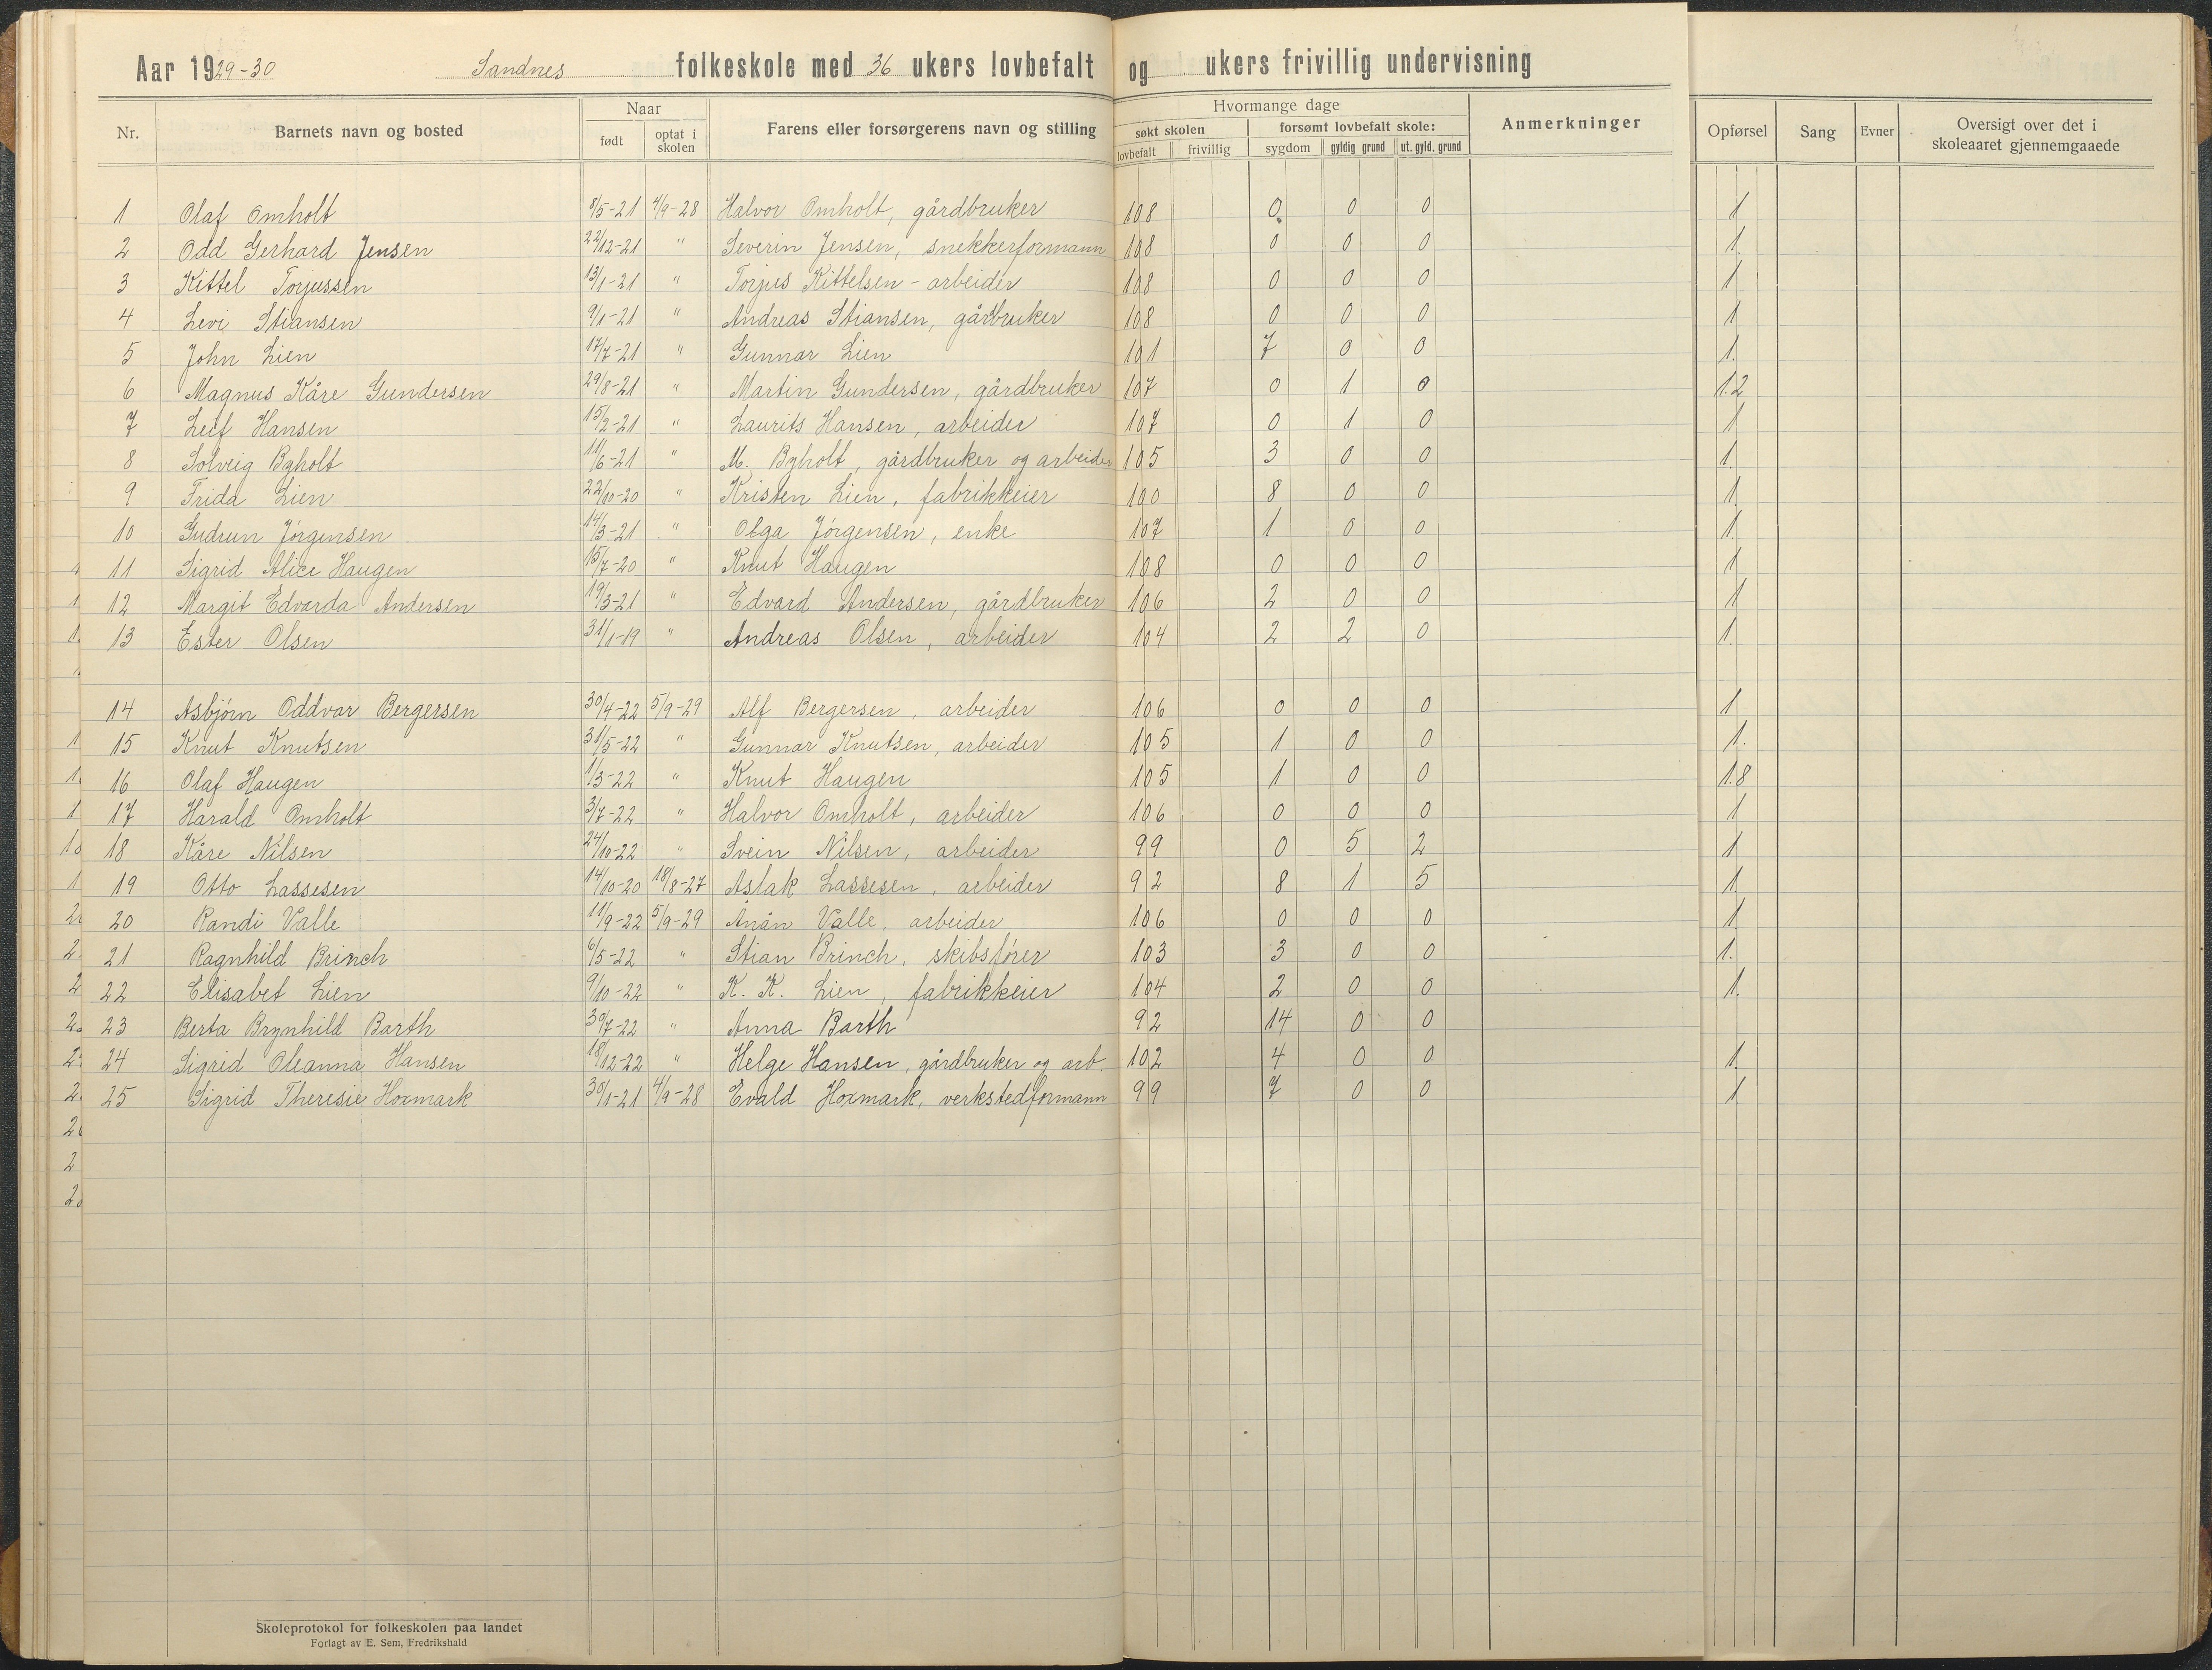 Aar 1929-30 Sandnes folkeskole med 36 ukers lovbefalt og ukers frivillig undervisning
Nr. Barnets navn og bosted Naar født optat i skolen Farens eller forsørgerens navn og stilling Hvormange dage søkt skolen lovbefalt frivillig forsømt lovbefalt skole: sygdom gyldig grund ut. gyld. grund Anmerkninger Opførsel Sang Evner Oversigt over det i skoleaaret gjennemgaaede
1 Olaf Omholt 8/5-21 4/9-28 Halvor Omholt, gårdbruker 108 0 0 0 1
2 Odd Gerhard Jensen 22/12-21 " Severin Jensen, snekkerformann 108 0 0 0 1
3 Kittel Torjussen 13/1-21 " Torjus Kittelsen - arbeider 108 0 0 0 1
4 Levi Stiansen 9/1-21 " Andreas Stiansen, gårbruker 108 0 0 0 1
5 John Lien 17/7-21 " Gunnar Lien 101 7 0 0 1.
6 Magnus Kåre Gundersen 29/8-21 " Martin Gundersen, gårdbruker 107 0 1 0 1.2
7 Leif Hansen 15/2-21 " Laurits Hansen, arbeider 107 0 1 0 1
8 Solveig Bgholt 11/6-21 " M. Bgholt, gårdbruker og arbeider 105 3 0 0 1.
9 Frida Lien 22/10-20 " Kristen Lien, fabrikkeier 100 8 0 0 1
10 Gudrun Jörgensen 14/3-21 " Olga Jörgensen, enke 107 1 0 0 1.
11 Sigrid Alice Haugen 15/7-20 " Knut Haugen 108 0 0 0 1
12 Margit Edvarda Andersen 19/3-21 " Edvard Andersen, gårdbruker 106 2 0 0 1
13 Ester Olsen 31/1-19 " Andreas Olsen, arbeider 104 2 2 0 1.
14 Asbjörn Oddvar Bergersen 30/4-22 5/9-29 Alf Bergersen, arbeider 106 0 0 0 1
15 Knut Knutsen 31/5-22 " Gunnar Knutsen, arbeider 105 1 0 0 1.
16 Olaf Haugen 1/3-22 " Knut Haugen 105 1 0 0 1.8
17 Harald Omholt 3/7-22 " Halvor Omholt, arbeider 106 0 0 0 1
18 Kåre Nilsen 24/10-22 " Svein Nilsen, arbeider 99 0 5 2 1
19 Otto Lassesen 14/10-20 18/8-27 Aslak Lassesen, arbeider 92 8 1 5 1
20 Randi Valle 11/9-22 5/9-29 Ånån Valle, arbeider 106 0 0 0 1
21 Ragnhild Brinch 6/5-22 " Stian Brinch, skibsförer 103 3 0 0 1.
22 Elisabet Lien 9/10-22 " K. K. Lien, fabrikkeier 104 2 0 0 1.
23 Berta Brynhild Barth 30/7-22 " Anna Barth 92 14 0 0
24 Sigrid Oleanna Hansen 18/12-22 " Helge Hansen, gårdbruker og arb. 102 4 0 0 1.
25 Sigrid Theresie Hoxmark 30/1-21 4/9-28 Evald Hoxmark, verkstedformann 99 7 0 0 1
Skoleprotokol for folkeskolen paa landet
Forlagt av E. Sem, Fredrikshald